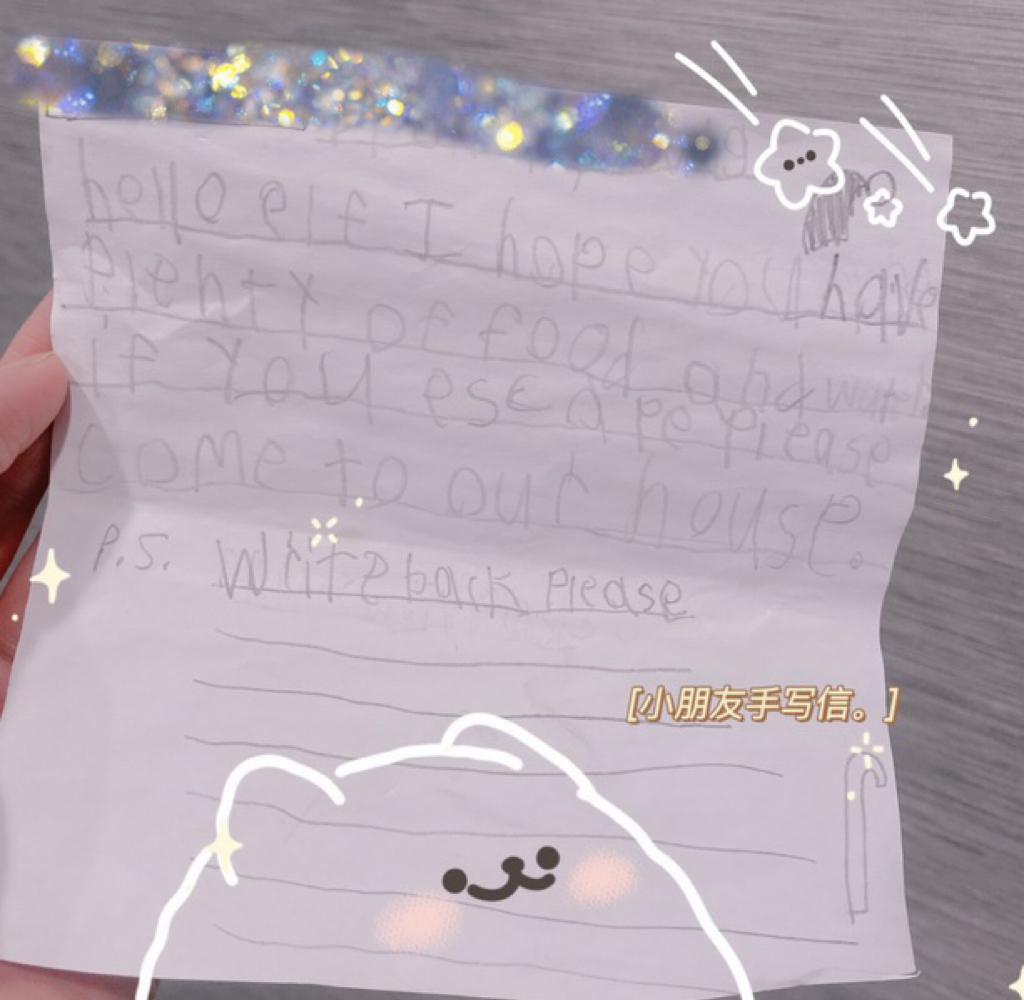 hello elf I hope you have
plenty of food and water
if you escape please
come to our house.
P.S. Write back please
[小朋友手写信。]